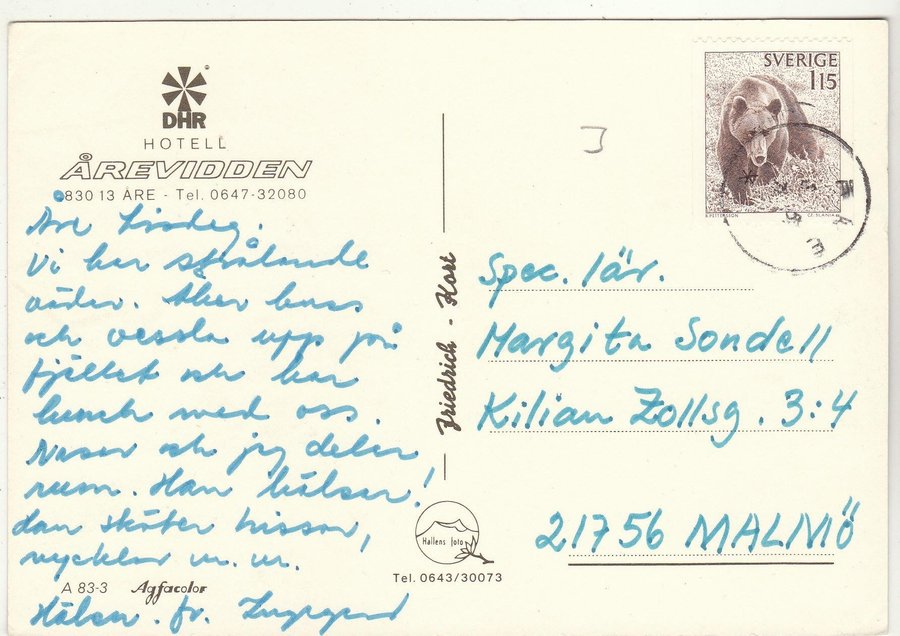 DHR
HOTELL
ÅREVIDDEN
830 13 ÅRE - Tel. 0647-32080
Åre Lördag.
Vi har strålande
väder. Åker buss
och vessla upp på
fjället och har
lunch med oss.
och jag delar
rum. Han hälsar!
Han sköter hissar,
nycklar m.m.
A 83-3 Agfacolor
Hälsn. fr. Ingegerd
Friedrich - Kort
Hallens foto
Tel. 0643/30073
SVERIGE
1 15
Spec. lär.
Margita Sondell
Kilian Zollsg. 3:4
21756 MALMÖ